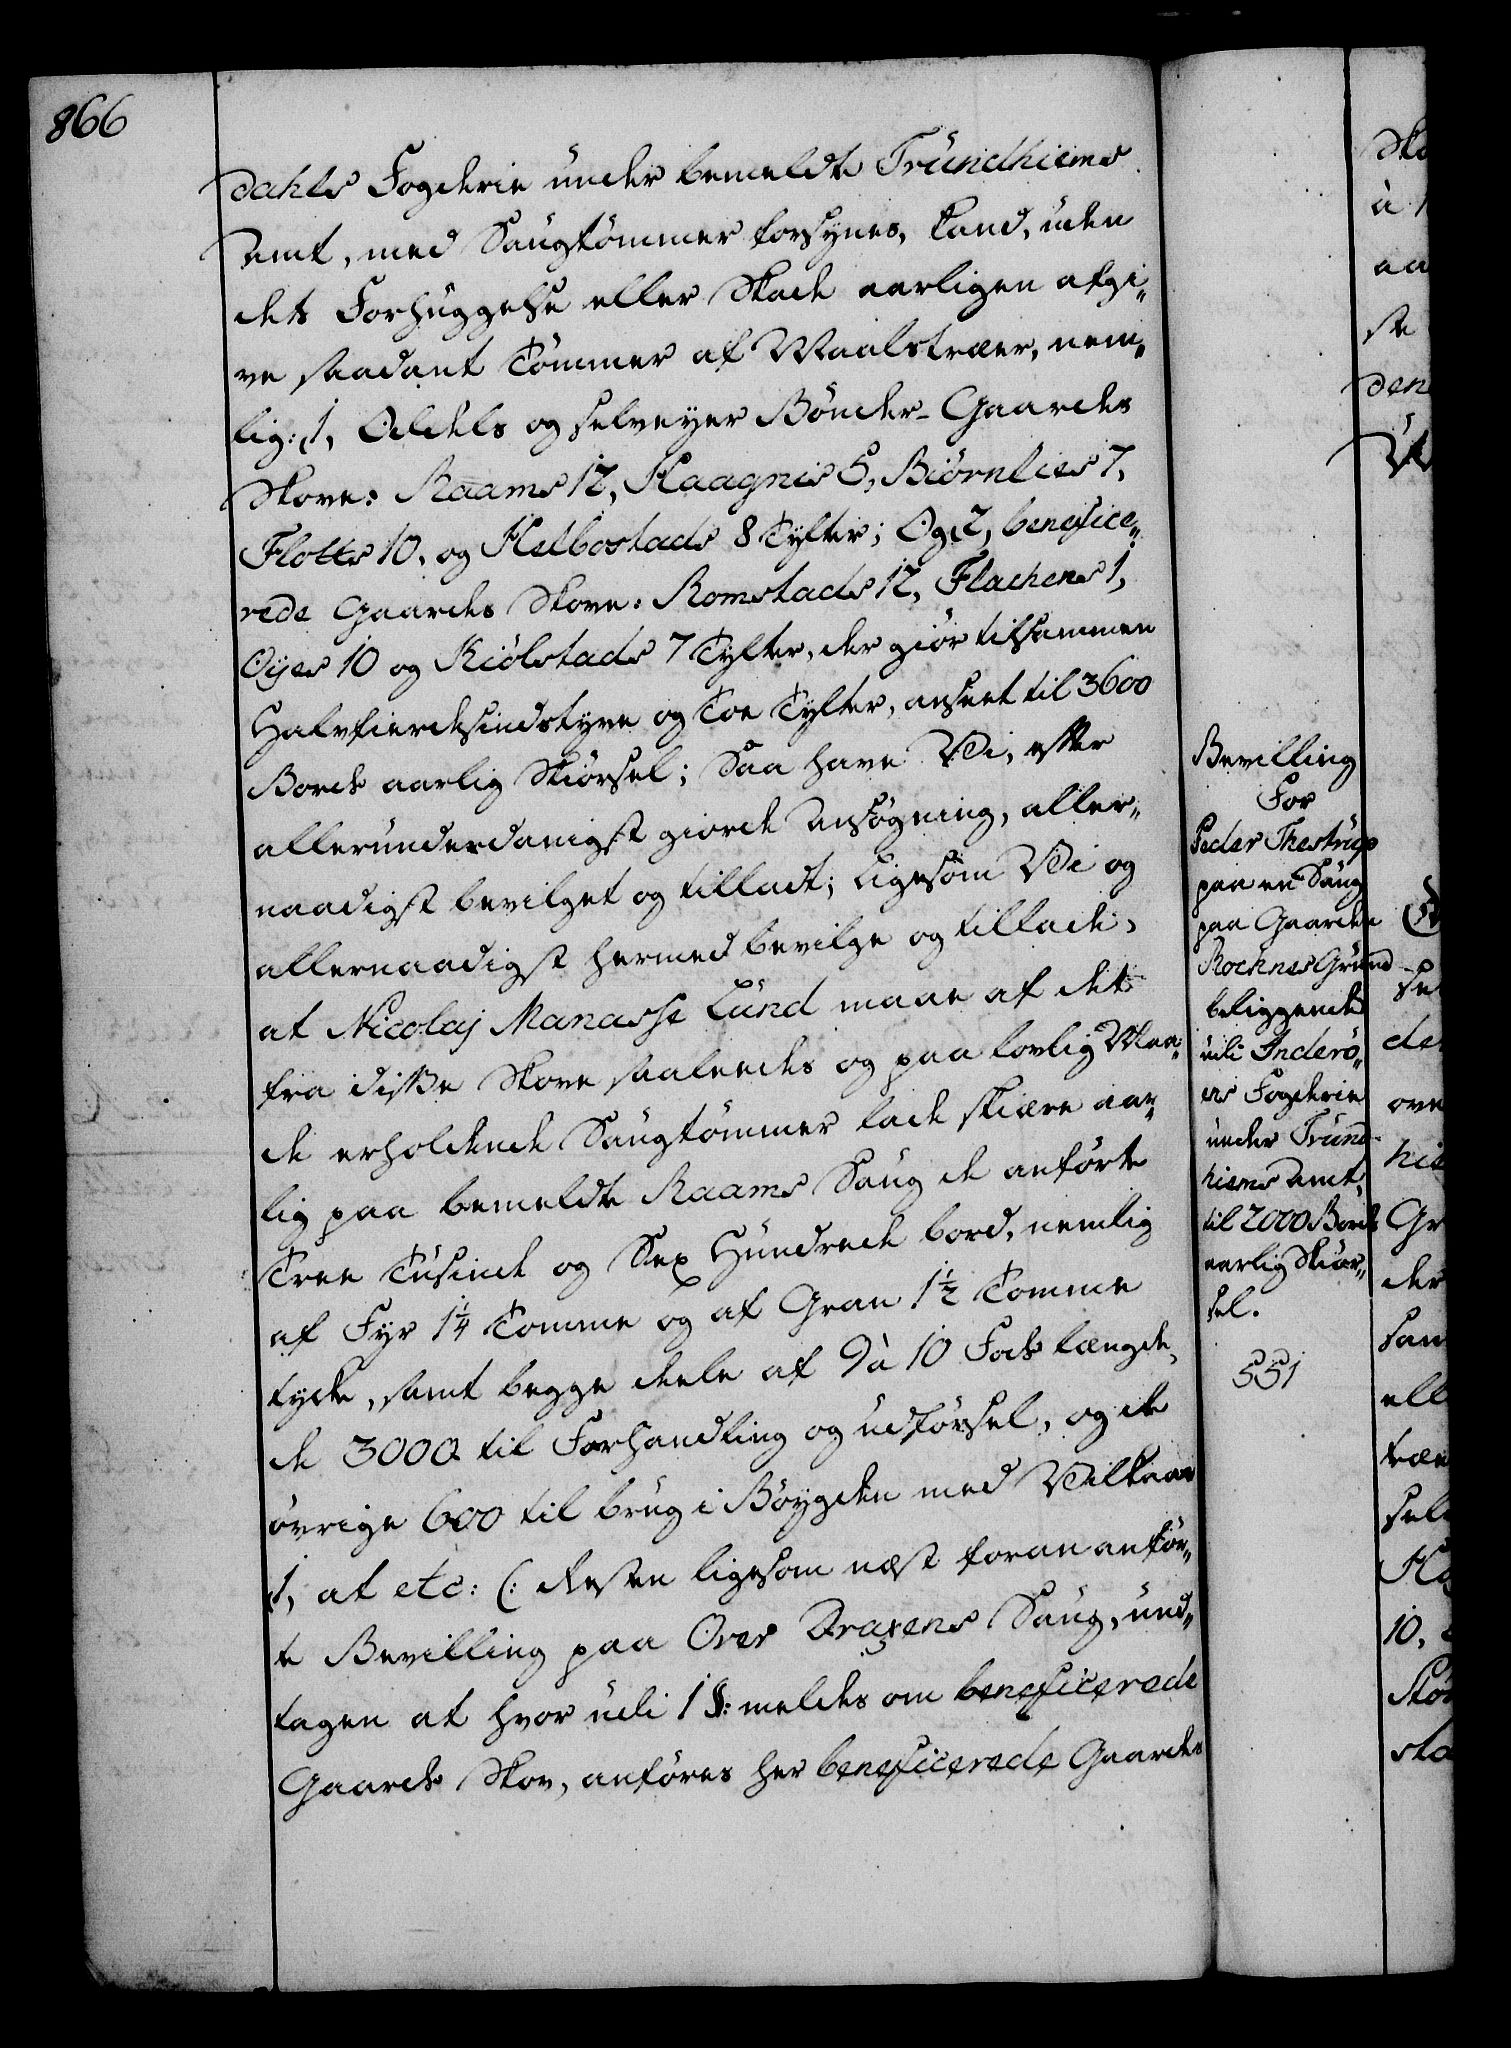 866
dahls Fogderie under bemeldte Trundhiems
Amt, med Saugtømmer forsynes, kand, uden
dets Forhuggelse eller Skade aarligen afgi„
ve saadant Tømmer af Maalstræer, nem„
lig: 1, Odels og selveyer Bønder-Gaardes
Skove: Raams 12, Haagnis 5, Biørnlies 7,
Flotts 10, og Helbostads 8 Tylter; Og 2, benefice„
rede Gaardes Skove: Romstads 12, Flachens 1,
Øyes 10 og Kiølstads 7 Tylter, der giør tilsammen
Halvfierdesindstyve og Toe Tylter, anseet til 3600
Borde aarlig Skiørsel; Saa have Vi, efter
allerunderdanigst giorde Ansøgning, aller„
naadigst bevilget og tilladt; ligesom Vi og
allernaadigst hermed bevilge og tillade,
at Nicolaj Manasse Lund maae af det
fra disse Skove saaledes og paa lovlig Maa„
de erholdende Saugtømmer lade skiære aar„
lig paa bemeldte Raams Saug de anførte
Tree Tusinde og Sex Hundrede bord, nemlig
af Fyr 1¼ Tomme og af Gran 1½ Tomme
tycke, samt begge deele af 9 à 10 Fods længde,
de 3000 til Forhandling og udførsel, og de
øvrige 600 til brug i Bøygden med Vilkaar
1, at etc: (: Resten ligesom næst foran anfør„
te Bevilling paa Over Draxens Saug, und„
tagen at hvor udi 1 §: meldes om beneficerede
Gaards Skov, anføres her beneficerede Gaardes
Bevilling
For
Peder Thestrup
paa en Saug
paa Gaarden
Rochnes Grund
beliggende
udi Inderø„
ens Fogderie
under Trund-
hiems Amt,
til 2000 Bords
aarlig Skiør„
sel.
551